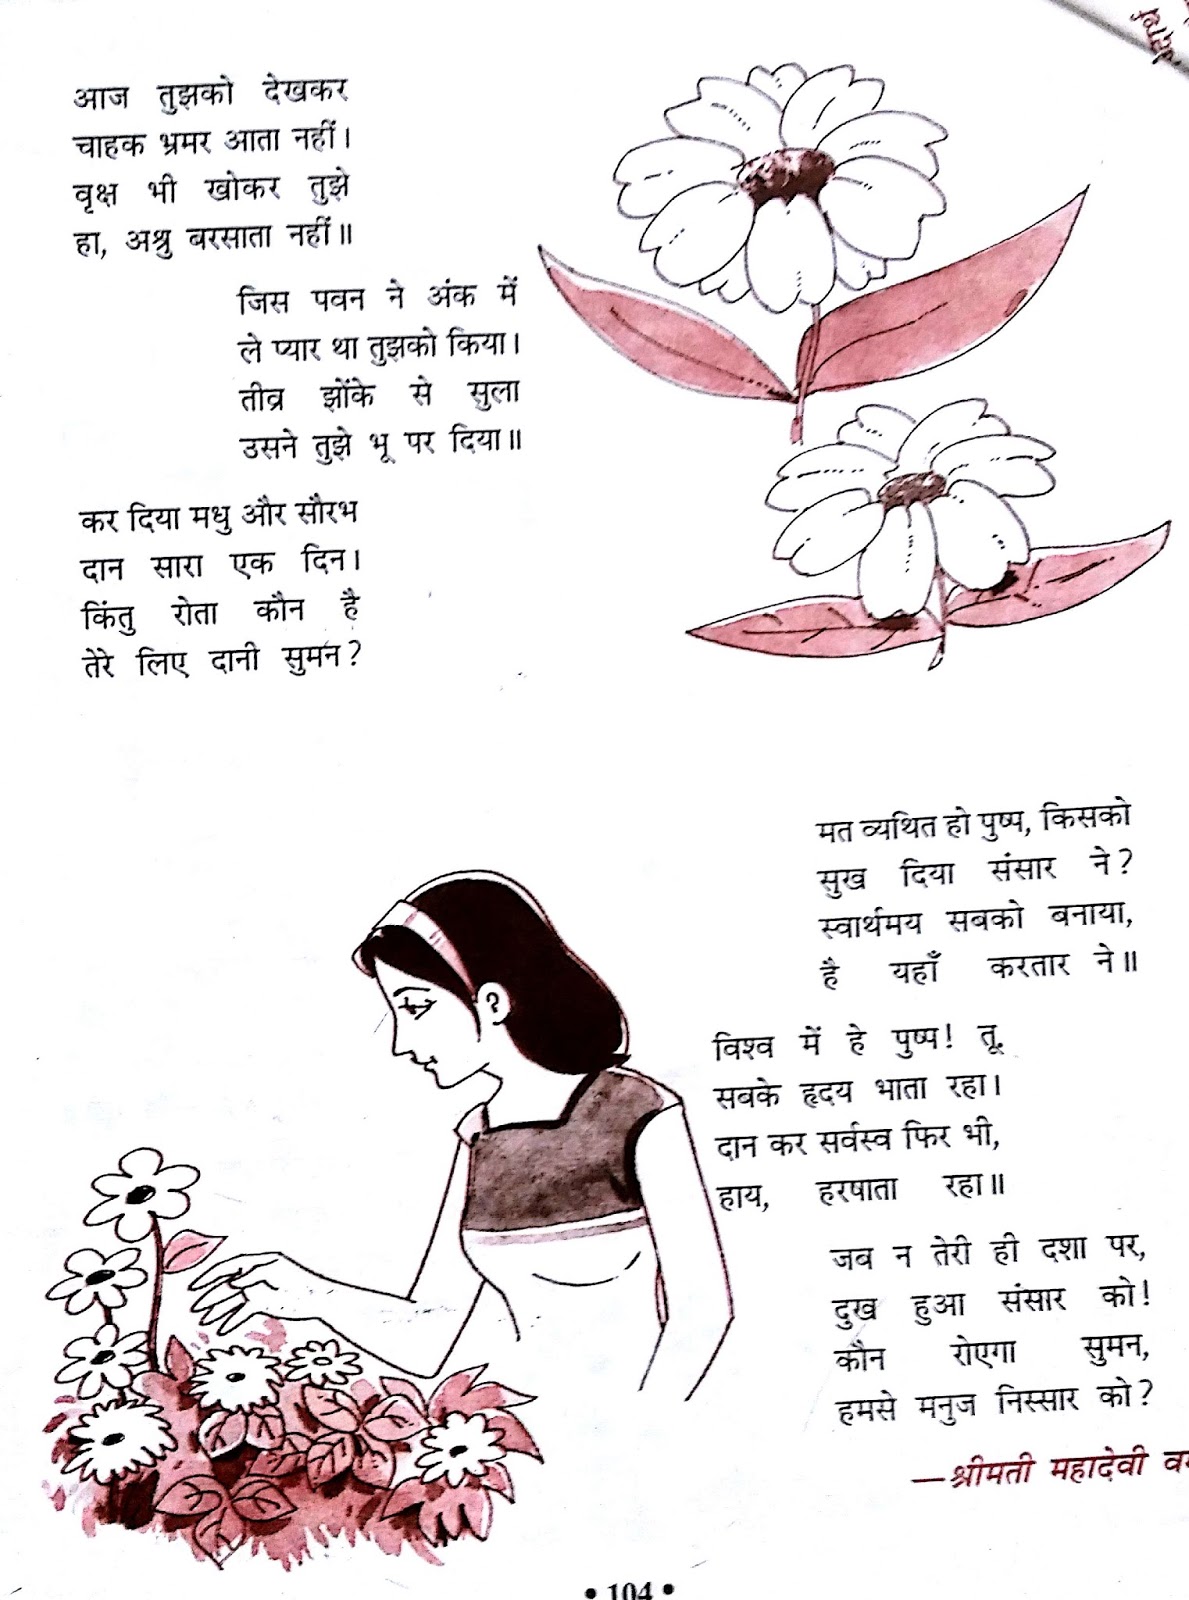 आज तुझको देखकर
चाहक भ्रमर आता नहीं।
वृक्ष भी खोकर तुझे
हा, अश्रु बरसाता नहीं॥
जिस पवन ने अंक में
ले प्यार था तुझको किया।
तीव्र झोंके से सुला
उसने तुझे भू पर दिया॥
कर दिया मधु और सौरभ
दान सारा एक दिन।
किंतु रोता कौन है
तेरे लिए दानी सुमन?
मत व्यथित हो पुष्प, किसको
सुख दिया संसार ने?
स्वार्थमय सबको बनाया,
है यहाँ करतार ने॥
विश्व में हे पुष्प! तू,
सबके हृदय भाता रहा।
दान कर सर्वस्व फिर भी,
हाय, हरषाता रहा॥
जब न तेरी ही दशा पर,
दुख हुआ संसार को!
कौन रोएगा सुमन,
हमसे मनुज निस्सार को?
—श्रीमती महादेवी
• 104 •